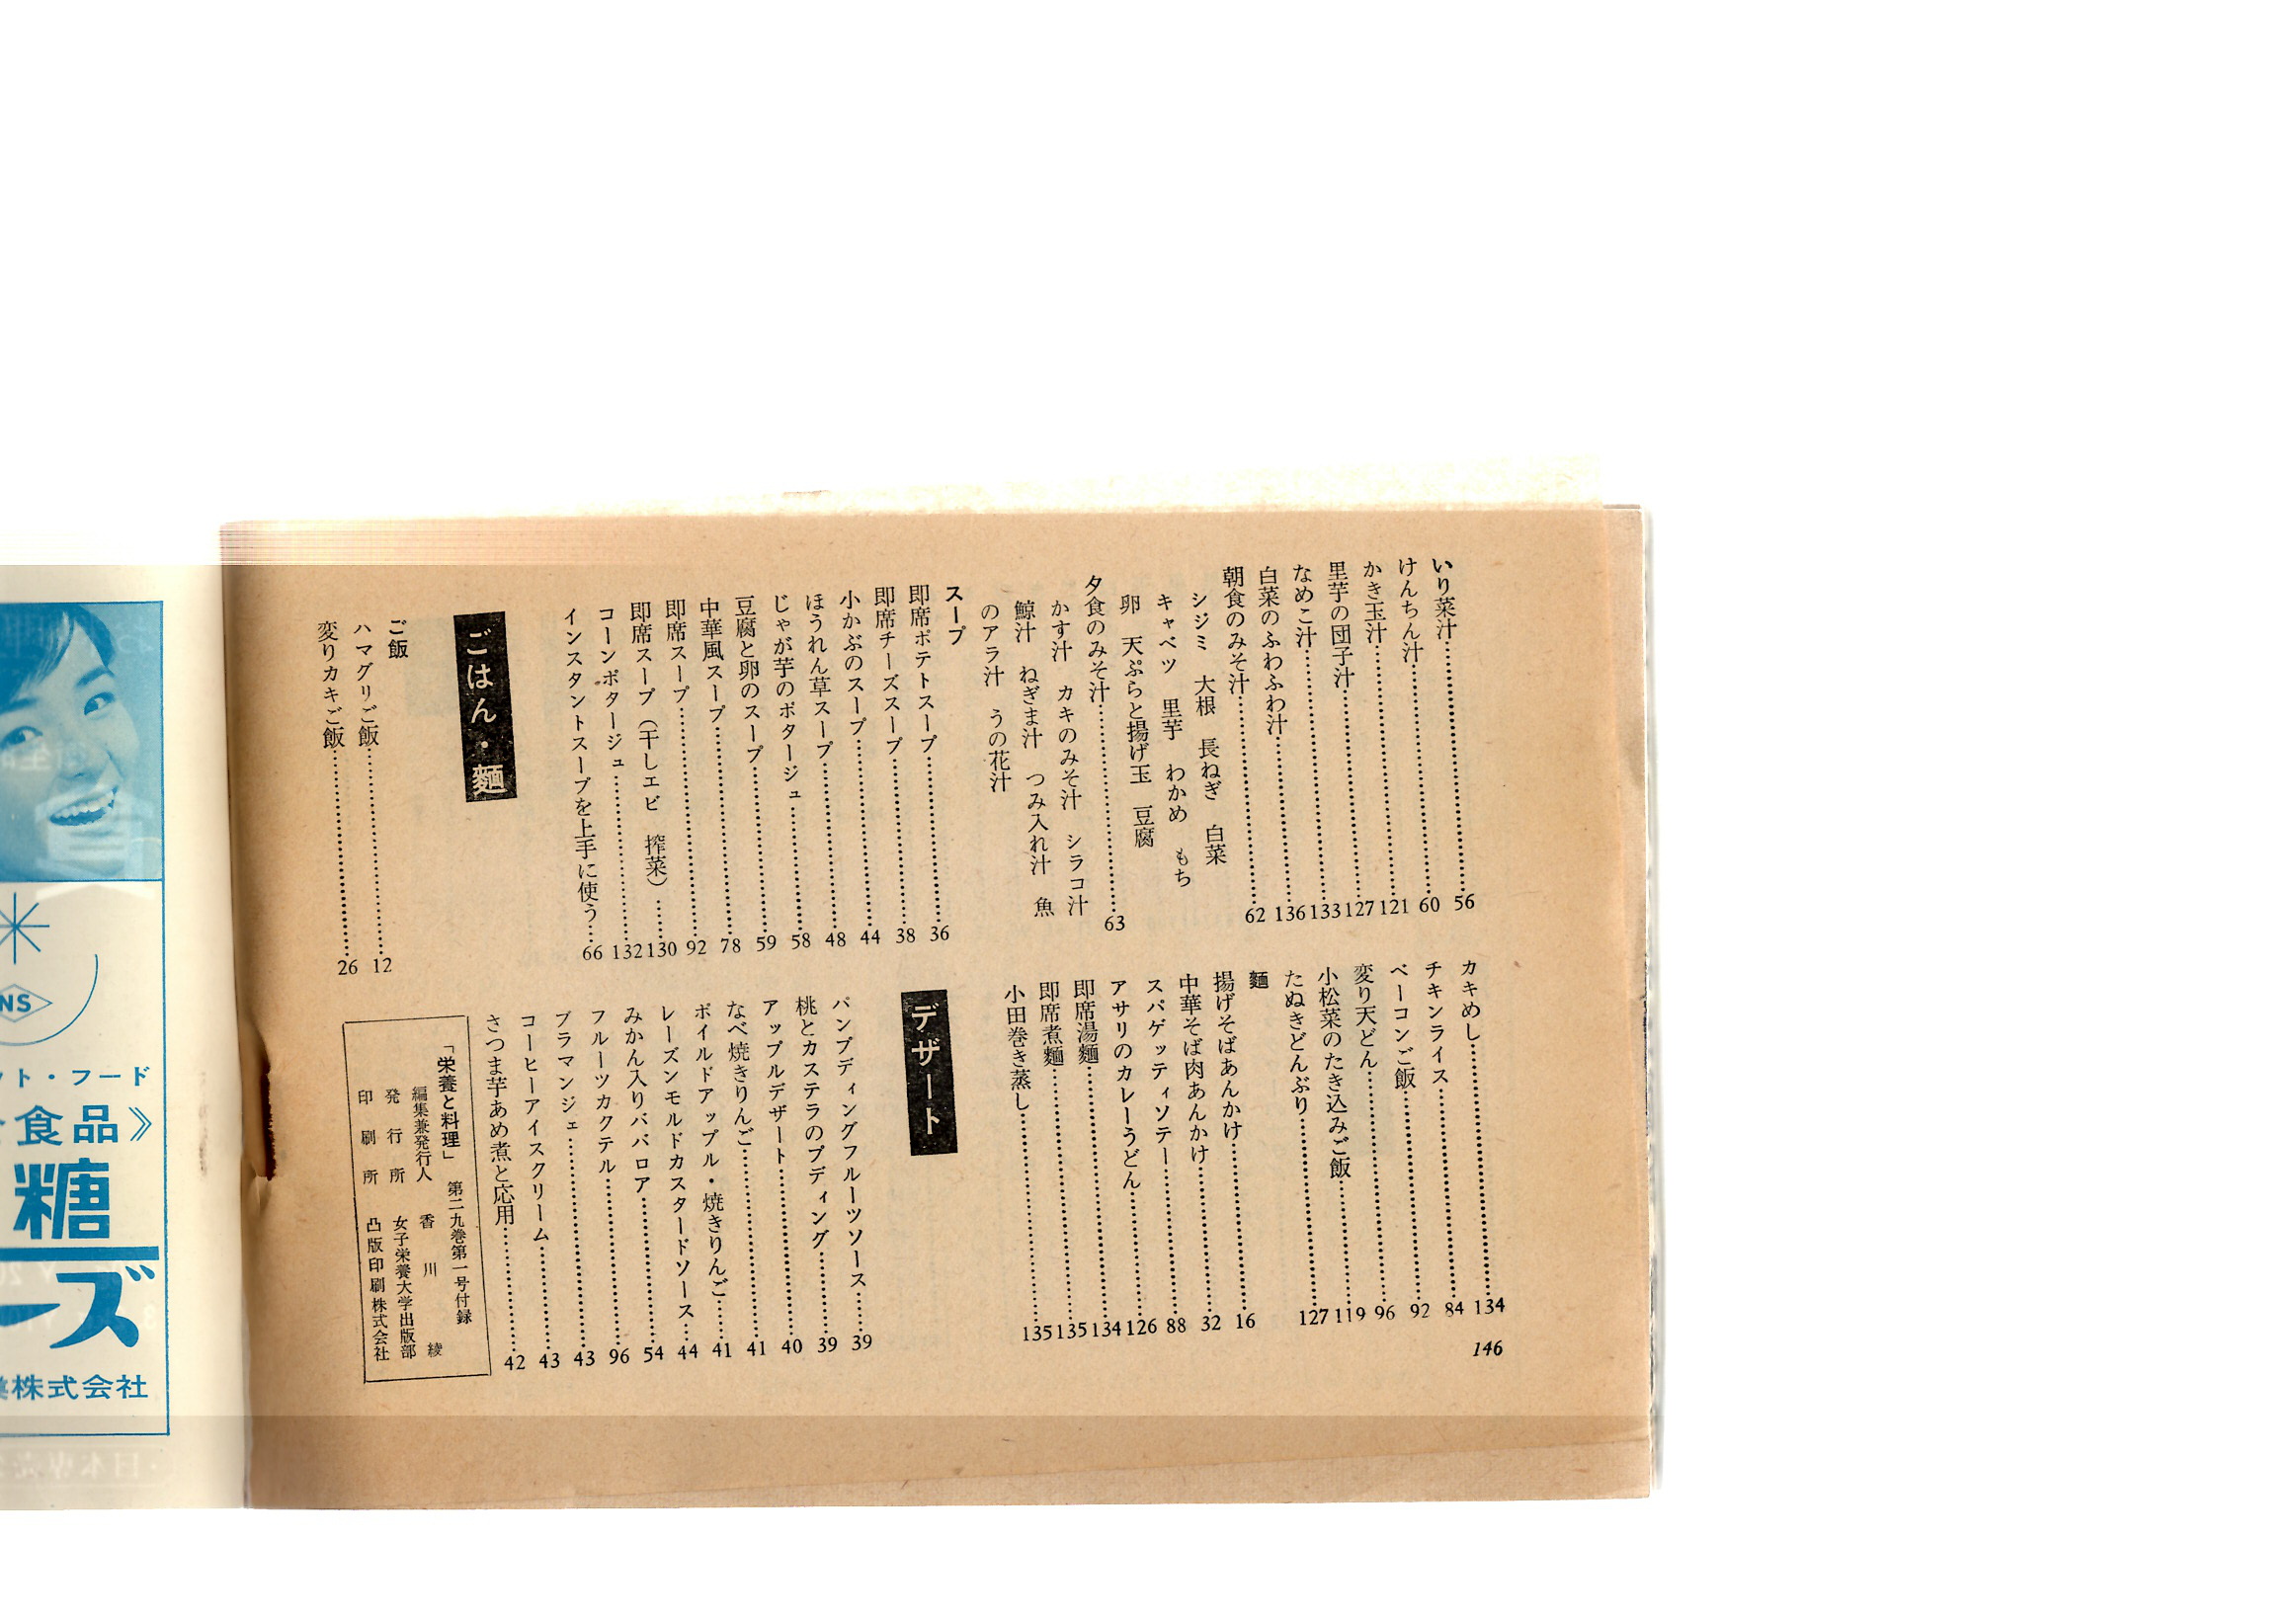 いり菜汁……56
けんちん汁……60
かき玉汁……121
里芋の団子汁……127
なめこ汁……133
白菜のふわふわ汁……136
朝食のみそ汁……62
シジミ　大根　長ねぎ　白菜
キャベツ　里芋　わかめ　もち
卵　天ぷらと揚げ玉　豆腐
夕食のみそ汁……63
かす汁　カキのみそ汁　シラコ汁
鯨汁　ねぎま汁　つみ入れ汁　魚
のアラ汁　うの花汁
スープ
即席ポテトスープ……36
即席チーズスープ……38
小かぶのスープ……44
ほうれん草スープ……48
じゃが芋のポタージュ……58
豆腐と卵のスープ……59
中華風スープ……78
即席スープ……92
即席スープ（干しエビ　搾菜）……130
コーンポタージュ……132
インスタントスープを上手に使う……66
ごはん・麺
ご飯
ハマグリご飯……12
変りカキご飯……26
カキめし……134
チキンライス……84
ベーコンご飯……92
変り天どん……96
小松菜のたき込みご飯……119
たぬきどんぶり……127
麺
揚げそばあんかけ……16
中華そば肉あんかけ……32
スパゲッティソテー……88
アサリのカレーうどん……126
即席湯麺……134
即席煮麺……135
小田巻き蒸し……135
デザート
パンプディングフルーツソース……39
桃とカステラのプディング……39
アップルデザート……40
なべ焼きりんご……41
ボイルドアップル・焼きりんご……41
レーズンモルドカスタードソース……44
みかん入りババロア……54
フルーツカクテル……96
ブラマンジェ……43
コーヒーアイスクリーム……43
さつま芋あめ煮と応用……42
「栄養と料理」　第二九巻第一号付録
編集兼発行人　香川　綾
発行所　女子栄養大学出版部
印刷所　凸版印刷株式会社
146
NS
ット・フード
食品》
糖
ーズ
株式会社